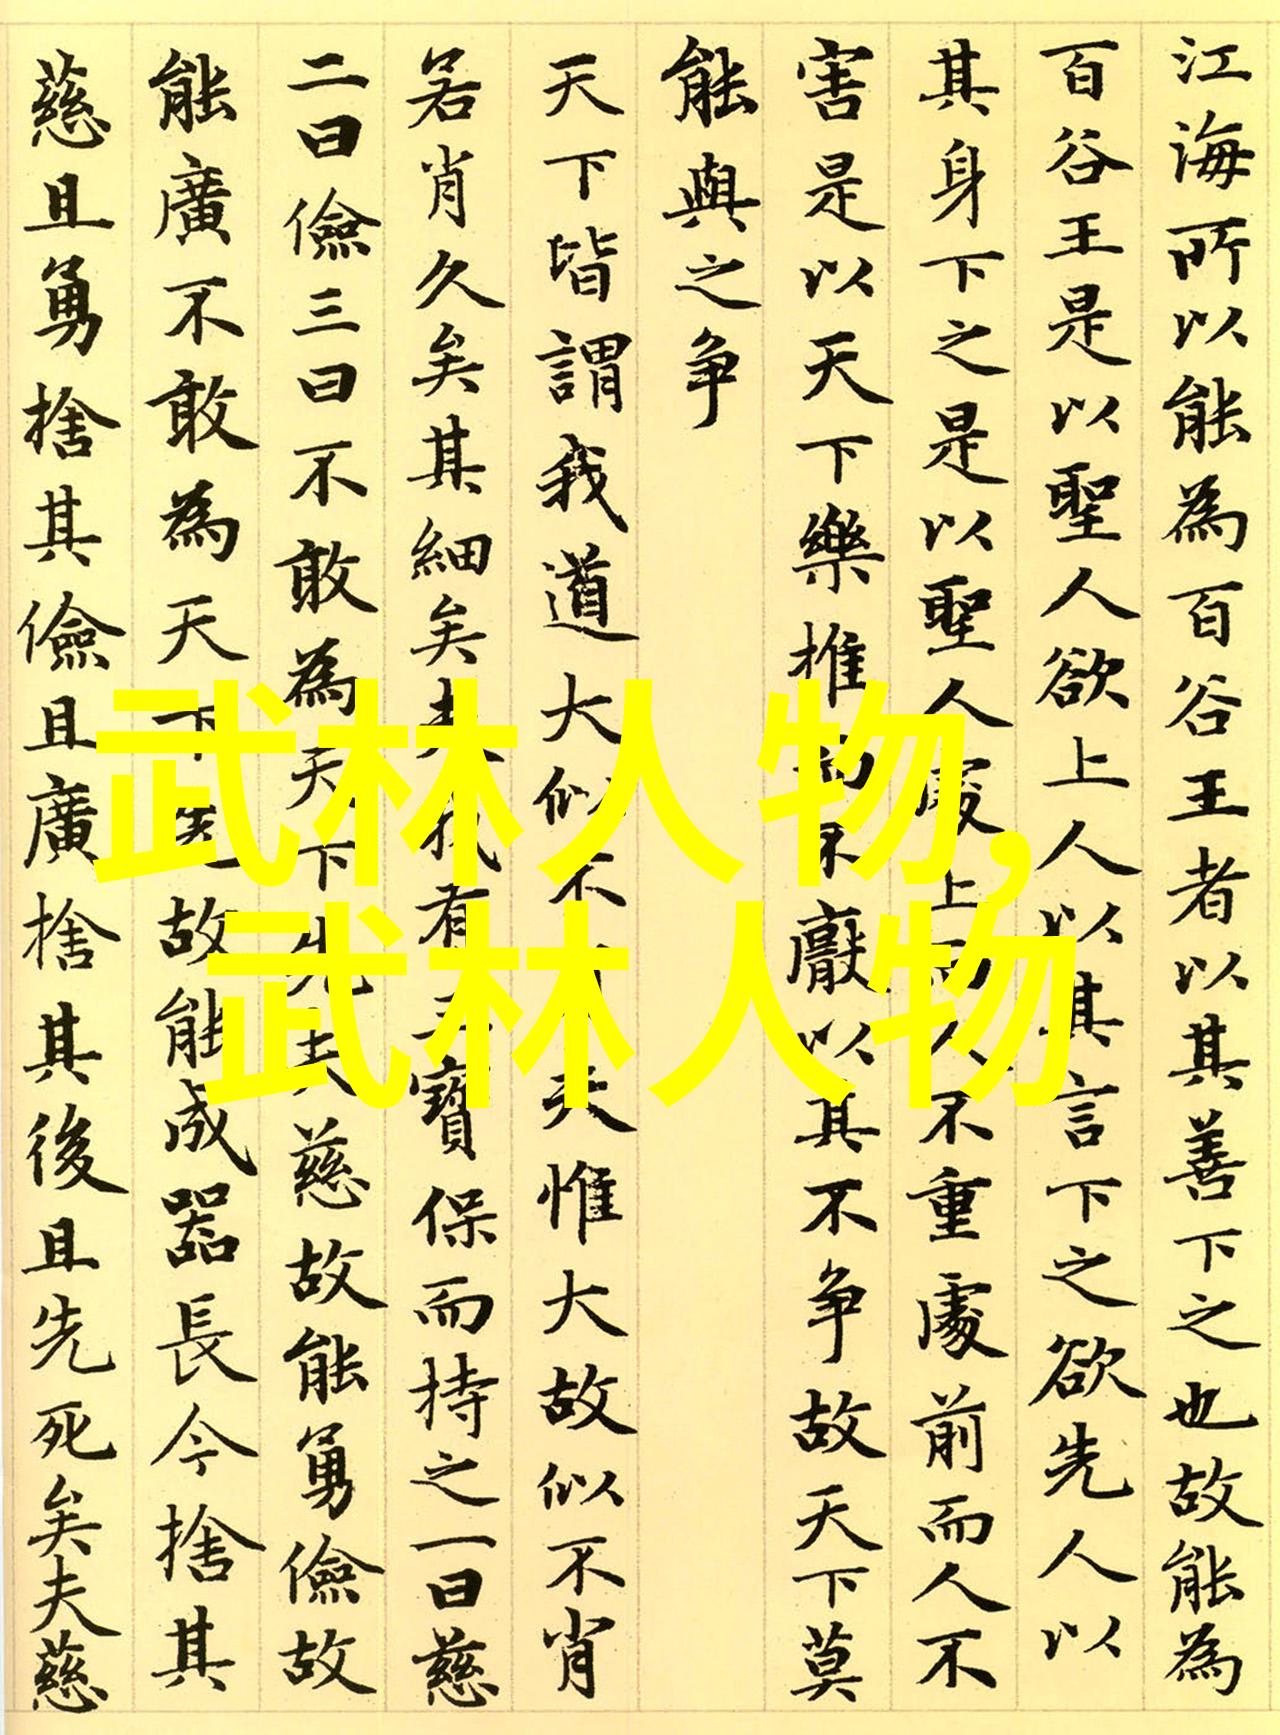 江海所以能為百谷王者以其善下之也故能為
百谷王是以聖人欲上人以其言下之欲先人以
其身下之是以聖人處上而人不重處前而人不
害是以天下樂推而不厭以其不争故天下莫
能與之争
天下皆謂我道大似不肖夫惟大故似不肖
若肖久矣其細矣夫我有三寶保而持之一曰慈
二曰儉三曰不敢為天下先夫慈故能勇儉故
能廣不敢為天下先故能成器長今捨其
慈且勇捨其儉且廣捨其後且先死矣夫慈
武林人物,
武林人物